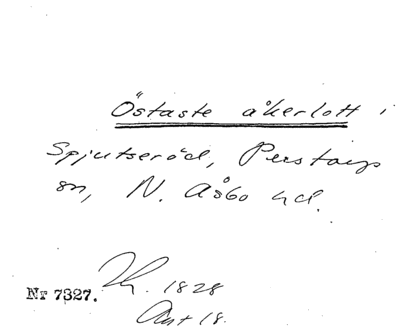 Östaste åkerlott i
Spjutseröd, Perstorps
sn, N. Åsbo hd.
Nr 7327. 1828